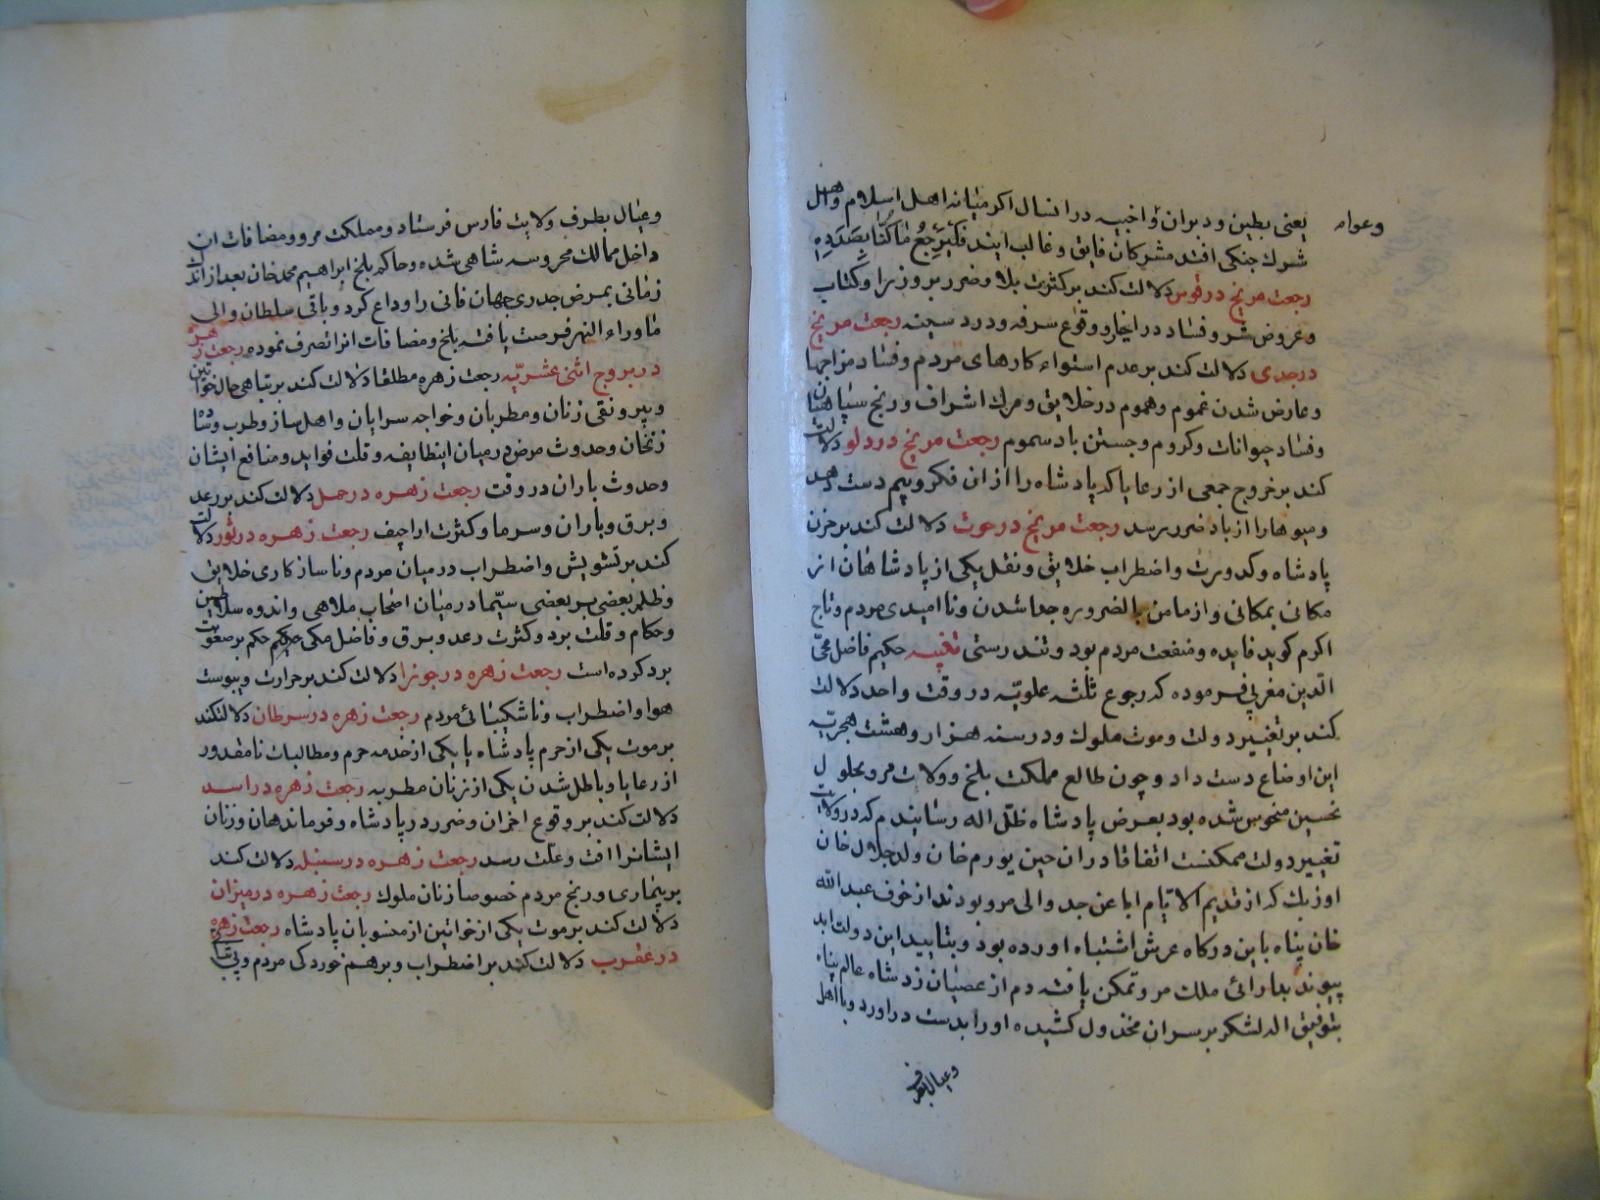 وعوام
یعنی بطین و دبران و اخبیه در انسال اکر میانه اهل اسلام و اهل
شرك جنکی افتد مشرکان فایق و غالب ایند فلیرجع ماکنا بصدده
رجعت مریخ در قوس دلالت کند بر کثرت بلا و ضرر بر وزرا و کتاب
و عروض شر و فساد در ایجار و وقوع سرفه و درد سینه رجعت مریخ
در جدی دلالت کند بر عدم استواء کارهای مردم و فساد مزاجها
و عارض شدن غموم و هموم در خلایق و مرك اشراف و رنج سپاهیان
و فساد حیوانات و کروم و جستن باد سموم رجعت مریخ در دلو دلالت
کند بر خروج جمعی از رعایا که پادشاه را از ان فکر و بیم دست دهد
و میوها را از باد ضرر رسد رجعت مریخ در حوت دلالت کند بر حزن
پادشاه و کدورت و اضطراب خلایق و نقل یکی از پادشاهان از
مکانی بمکانی و از مامن بالضروره جدا شدن و ناامیدی مردم و تاج
اکرم کوید فایده و منفعت مردم بود و تندرستی تنبیه حکیم فاضل محی
الدین مغربی فرموده که رجوع ثلثه علویه در وقت واحد دلالت
کند بر تغییر دولت و موت ملوك و در سنه هزار و هشت هجریه
این اوضاع دست داد و چون طالع مملکت بلخ و ولات مرو بحلول
نحسین منحوس شده بود بعرض پادشاه ظل اله رسانیدم که در ولایت
تغییر دولت ممکنست اتفاقا دران حین یورم خان ولد جلال خان
اوزبك که از قدیم الایام ابا عن جد والی مرو بودند از خوف عبد الله
خان پناه باین درکاه عرش اشتباه اورده بود و بتایید این دولت ابد
پیوند بدارائی ملك مرو تمکن یافته دم از عصیان زد شاه عالم پناه
بتوفیق اله لشکر بر سر ان مخذول کشیده او را بدست دراورد و با اهل
وعیال بطرف
وعیال بطرف ولایت فارس فرستاد و مملکت مرو و مضافات ان
داخل ممالك محروسه شاهی شده و حاکم بلخ ابراهیم محمد خان بعد از اندك
زمانی بمرض جدری جهان فانی را وداع کرد و باقی سلطان والی
ماوراء النهر فرصت یافته بلخ و مضافات انرا تصرف نموده رجعت زهره
در بروج اثنی عشریه رجعت زهره مطلقا دلالت کند بر تباهی حال خواتین
و بیرونقی زنان و مطربان و خواجه سرایان و اهل ساز و طرب و ساده
زنخان و حدوث مرض درمیان اینطایفه و قلت فواید و منافع ایشان
و حدوث باران در وقت رجعت زهره در حمل دلالت کند بر رعد
و برق و باران و سرما و کثرت اراجیف رجعت زهره در ثور دلالت
کند بر تشویش و اضطراب درمیان مردم و ناسازکاری خلایق
و ظلم بعضی بر بعضی سیما درمیان اصحاب ملاهی و اندوه سلاطین
و حکام و قلت برد و کثرت رعد و برق و فاضل مکی حکم بر صعوبت
برد کرده است رجعت زهره در جوزا دلالت کند بر حرارت و یبوست
هوا و اضطراب و ناشکیبائی مردم رجعت زهره در سرطان دلالتکند
بر موت یکی از حرم پادشاه یا یکی از خدمه حرم و مطالبات نامقدور
از رعایا و باطل شدن یکی از زنان مطربه رجعت زهره در اسد
دلالت کند بر وقوع احزان و ضرر در پادشاه و فرماندهان و زنان
ایشانرا افت و علت رسد رجعت زهره در سنبله دلالت کند
بر بیماری و رنج مردم خصوصا زنان ملوك رجعت زهره در میزان
دلالت کند بر موت یکی از خواتین از منسوبان پادشاه رجعت زهره
در عقرب دلالت کند بر اضطراب و برهم خوردکی مردم و بی